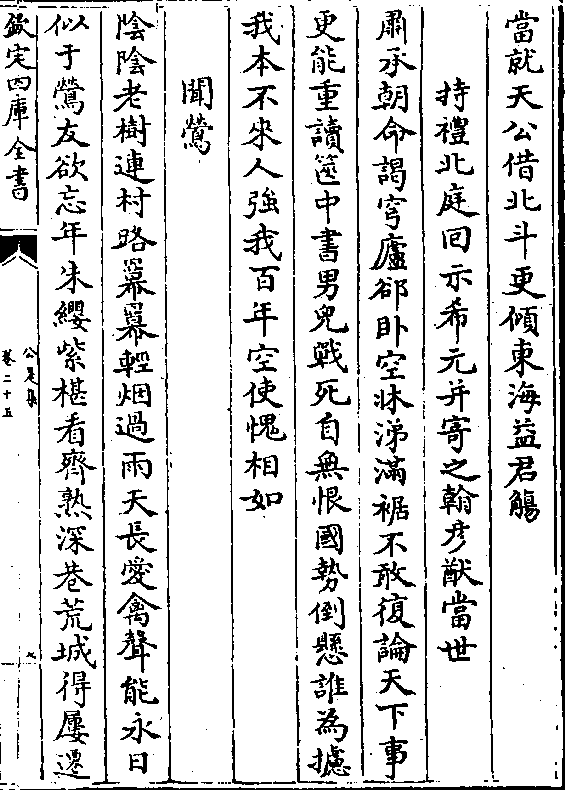 當就天公借北斗更傾東海益君觴
持禮北庭回示希元并寄之翰彦猷當世
肅承朝命謁穹廬郤卧空牀涕滿裾不敢復論天下事
更能重讀篋中書男兒戰死自無恨國勢倒懸誰為攄
我本不來人強我百年空使愧相如
聞鶯
陰陰老樹連村路羃羃輕烟過雨天長愛禽聲能永日
似于鶯友欲忘年朱纓紫椹看齊熟深巷荒城得屢遷
欽定四庫全書
公是集
卷二十五
九